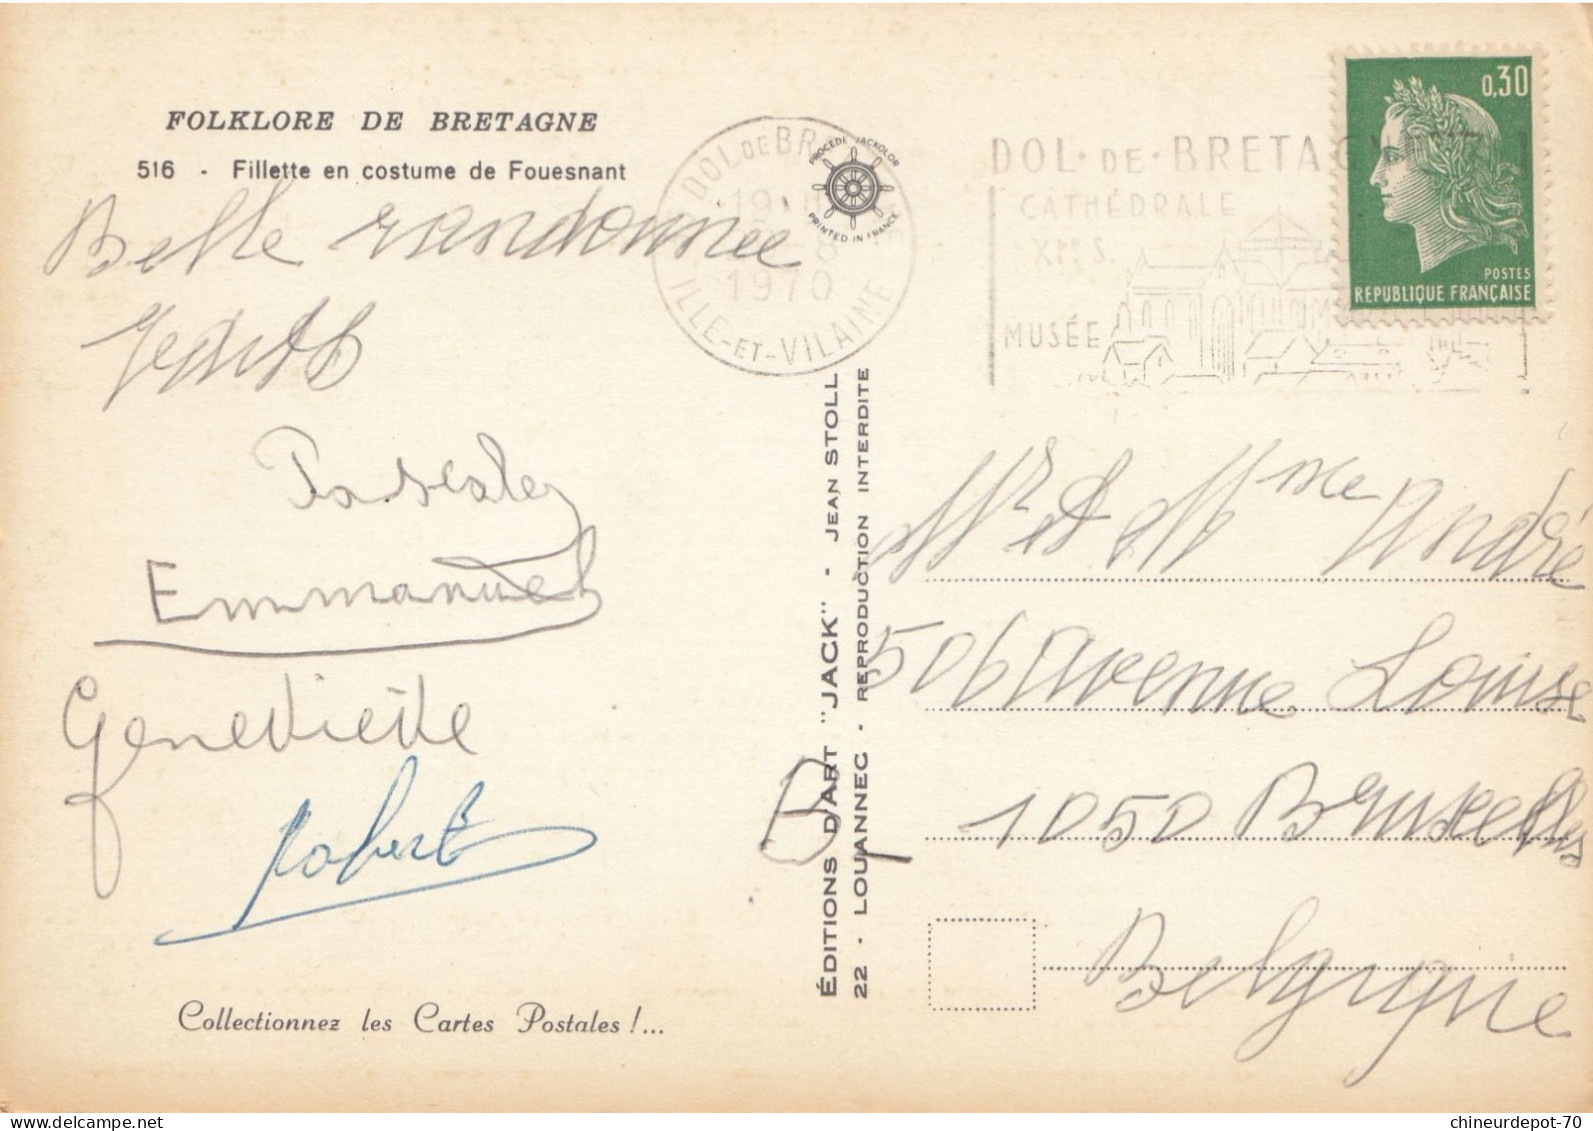 FOLKLORE DE BRETAGNE
516 - Fillette en costume de Fouesnant
Belle randonnée
Pascale
Emmanuel
Geneviève
Robert
Collectionnez les Cartes Postales !...
DOL DE BR
19
1970
ILLE-ET-VILAINE
PROCÉDÉ JACKOLOR
PRINTED IN FRANCE
ÉDITIONS D'ART "JACK" - JEAN STOLL
22 - LOUANNEC - REPRODUCTION INTERDITE
DOL · DE · BRETAGN
CATHÉDRALE
XIIe S.
MUSÉE
0,30
POSTES
RÉPUBLIQUE FRANÇAISE
Mr et Mme André
506 Avenue Louise
B 1050 Bruxelles
Belgique
chineurdepot-70